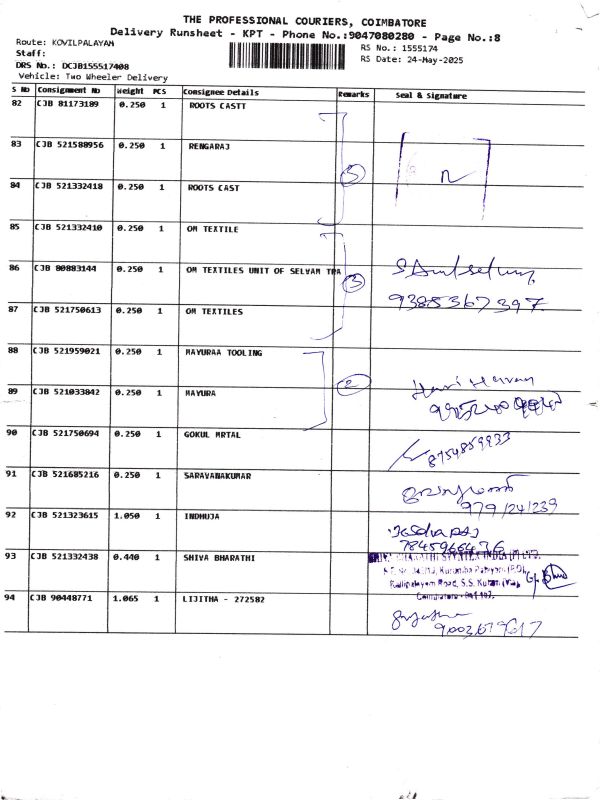 THE PROFESSIONAL COURIERS, COIMBATORE
Delivery Runsheet - KPT - Phone No.:9047080280 - Page No.:8
Route: KOVILPALAYAM
RS No.: 1555174
Staff:
RS Date: 24-May-2025
DRS No.: DCJB155517408
Vehicle: Two Wheeler Delivery
S No Consignment No Weight PCS Consignee Details Remarks Seal & Signature
82 CJB 81173189 0.250 1 ROOTS CASTT
83 CJB 521588956 0.250 1 RENGARAJ
84 CJB 521332418 0.250 1 ROOTS CAST
85 CJB 521332410 0.250 1 OM TEXTILE
86 CJB 80883144 0.250 1 OM TEXTILES UNIT OF SELVAM TRA 3
9385367397
87 CJB 521750613 0.250 1 OM TEXTILES
88 CJB 521959021 0.250 1 MAYURAA TOOLING
2 Hari Haran
89 CJB 521033842 0.250 1 MAYURA
90 CJB 521750694 0.250 1 GOKUL MRTAL 8754859933
91 CJB 521685216 0.250 1 SARAVANAKUMAR
92 CJB 521323615 1.050 1 INDHUJA
93 CJB 521332438 0.440 1 SHIVA BHARATHI
INDIA (P) LTD.
Road, S.S. Kulam (Via),
94 CJB 90448771 1.065 1 LIJITHA - 272582